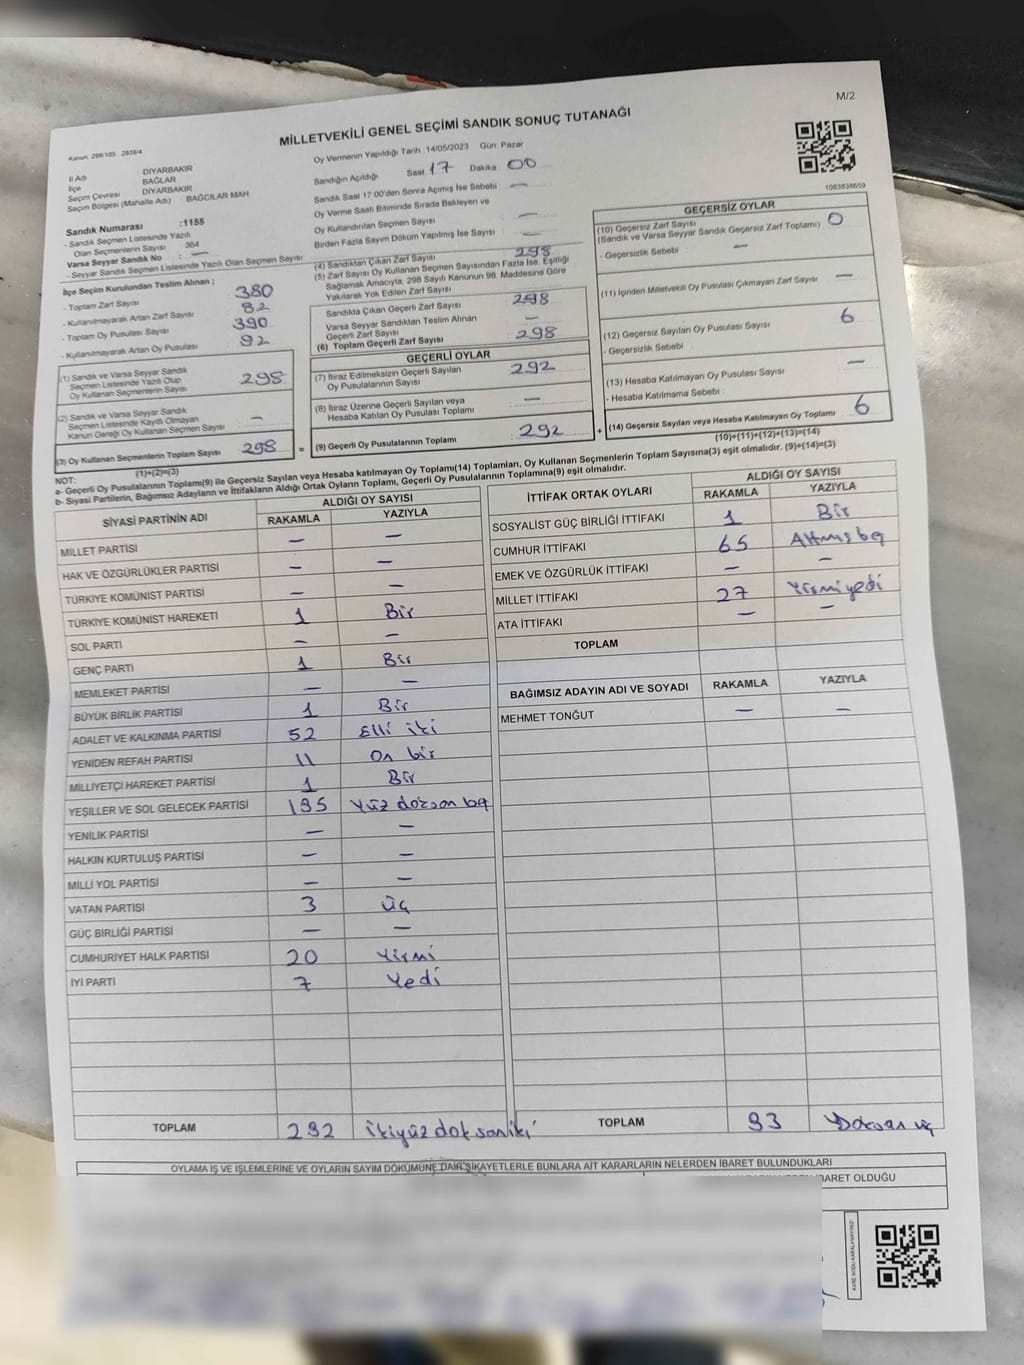 M/2
MİLLETVEKİLİ GENEL SEÇİMİ SANDIK SONUÇ TUTANAĞI
Kanun: 298/105 . 2839/4
Oy Vermenin Yapıldığı Tarih : 14/05/2023 Gün: Pazar
İl Adı DİYARBAKIR
İlçe BAĞLAR
Seçim Çevresi DİYARBAKIR
Seçim Bölgesi (Mahalle Adı) BAĞCILAR MAH
Sandık Numarası :1155
- Sandık Seçmen Listesinde Yazılı
Olan Seçmenlerin Sayısı : 364
Varsa Seyyar Sandık No : —
- Seyyar Sandık Seçmen Listesinde Yazılı Olan Seçmen Sayısı
Sandığın Açıldığı Saat 17 Dakika 00
Sandık Saat 17:00'den Sonra Açılmış İse Sebebi —
Oy Verme Saati Bitiminde Sırada Bekleyen ve
Oy Kullandırılan Seçmen Sayısı —
Birden Fazla Sayım Döküm Yapılmış İse Sayısı —
1083838659
İlçe Seçim Kurulundan Teslim Alınan ;
- Toplam Zarf Sayısı 380
- Kullanılmayarak Artan Zarf Sayısı 82
- Toplam Oy Pusulası Sayısı 390
- Kullanılmayarak Artan Oy Pusulası 92
(1) Sandık ve Varsa Seyyar Sandık
Seçmen Listesinde Yazılı Olup
Oy Kullanan Seçmenlerin Sayısı 298
(2) Sandık ve Varsa Seyyar Sandık
Seçmen Listesinde Kayıtlı Olmayan
Kanun Gereği Oy Kullanan Seçmen Sayısı —
(3) Oy Kullanan Seçmenlerin Toplam Sayısı 298
(1)+(2)=(3)
(4) Sandıktan Çıkan Zarf Sayısı 298
(5) Zarf Sayısı Oy Kullanan Seçmen Sayısından Fazla İse, Eşitliği
Sağlamak Amacıyla, 298 Sayılı Kanunun 98. Maddesine Göre
Yakılarak Yok Edilen Zarf Sayısı
Sandıkta Çıkan Geçerli Zarf Sayısı 298
Varsa Seyyar Sandıktan Teslim Alınan
Geçerli Zarf Sayısı —
(6) Toplam Geçerli Zarf Sayısı 298
GEÇERLİ OYLAR
(7) İtiraz Edilmeksizin Geçerli Sayılan
Oy Pusulalarının Sayısı 292
(8) İtiraz Üzerine Geçerli Sayılan veya
Hesaba Katılan Oy Pusulası Toplamı —
= (9) Geçerli Oy Pusulalarının Toplamı 292 +
GEÇERSİZ OYLAR
(10) Geçersiz Zarf Sayısı
(Sandık ve Varsa Seyyar Sandık Geçersiz Zarf Toplamı) 0
- Geçersizlik Sebebi —
(11) İçinden Milletvekili Oy Pusulası Çıkmayan Zarf Sayısı —
(12) Geçersiz Sayılan Oy Pusulası Sayısı 6
- Geçersizlik Sebebi
(13) Hesaba Katılmayan Oy Pusulası Sayısı —
- Hesaba Katılmama Sebebi :
(14) Geçersiz Sayılan veya Hesaba Katılmayan Oy Toplamı 6
(10)+(11)+(12)+(13)=(14)
NOT:
a- Geçerli Oy Pusulalarının Toplamı(9) ile Geçersiz Sayılan veya Hesaba katılmayan Oy Toplamı(14) Toplamları, Oy Kullanan Seçmenlerin Toplam Sayısına(3) eşit olmalıdır. (9)+(14)=(3)
b- Siyasi Partilerin, Bağımsız Adayların ve İttifakların Aldığı Ortak Oyların Toplamı, Geçerli Oy Pusulalarının Toplamına(9) eşit olmalıdır.
SİYASİ PARTİNİN ADI ALDIĞI OY SAYISI
RAKAMLA YAZIYLA
MİLLET PARTİSİ — —
HAK VE ÖZGÜRLÜKLER PARTİSİ — —
TÜRKİYE KOMÜNİST PARTİSİ — —
TÜRKİYE KOMÜNİST HAREKETİ 1 Bir
SOL PARTİ — —
GENÇ PARTİ 1 Bir
MEMLEKET PARTİSİ — —
BÜYÜK BİRLİK PARTİSİ 1 Bir
ADALET VE KALKINMA PARTİSİ 52 Elli iki
YENİDEN REFAH PARTİSİ 11 On bir
MİLLİYETÇİ HAREKET PARTİSİ 1 Bir
YEŞİLLER VE SOL GELECEK PARTİSİ 195 Yüz doksan beş
YENİLİK PARTİSİ — —
HALKIN KURTULUŞ PARTİSİ — —
MİLLİ YOL PARTİSİ — —
VATAN PARTİSİ 3 Üç
GÜÇ BİRLİĞİ PARTİSİ — —
CUMHURİYET HALK PARTİSİ 20 Yirmi
İYİ PARTİ 7 Yedi
TOPLAM 292 İkiyüz doksaniki
İTTİFAK ORTAK OYLARI ALDIĞI OY SAYISI
RAKAMLA YAZIYLA
SOSYALİST GÜÇ BİRLİĞİ İTTİFAKI 1 Bir
CUMHUR İTTİFAKI 65 Altmış beş
EMEK VE ÖZGÜRLÜK İTTİFAKI — —
MİLLET İTTİFAKI 27 Yirmi yedi
ATA İTTİFAKI — —
TOPLAM
BAĞIMSIZ ADAYIN ADI VE SOYADI RAKAMLA YAZIYLA
MEHMET TONĞUT — —
TOPLAM 93 Doksan üç
OYLAMA İŞ VE İŞLEMLERİNE VE OYLARIN SAYIM DÖKÜMÜNE DAİR ŞİKAYETLERLE BUNLARA AİT KARARLARIN NELERDEN İBARET BULUNDUKLARI
İBARET OLDUĞU
KARE KODU KARALAMAYINIZ!